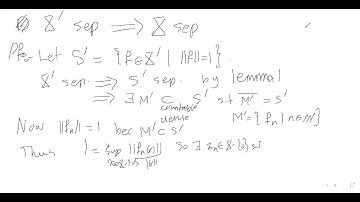 X' sep ⟹ X sep
Pf: Let S' = {f ∈ X' | ||f|| = 1}.
X' sep. ⟹ S' sep. by lemma
⟹ ∃ M' ⊂ S' s.t. M̅'̅ = S'
countable dense
M' = {fₙ | n ∈ ℕ}
Now ||fₙ|| = 1 bec M' ⊂ S'
Thus 1 = sup ||fₙ(x)|| / ||x|| so ∃ xₙ ∈ X - {0} st
x ∈ X - {0}